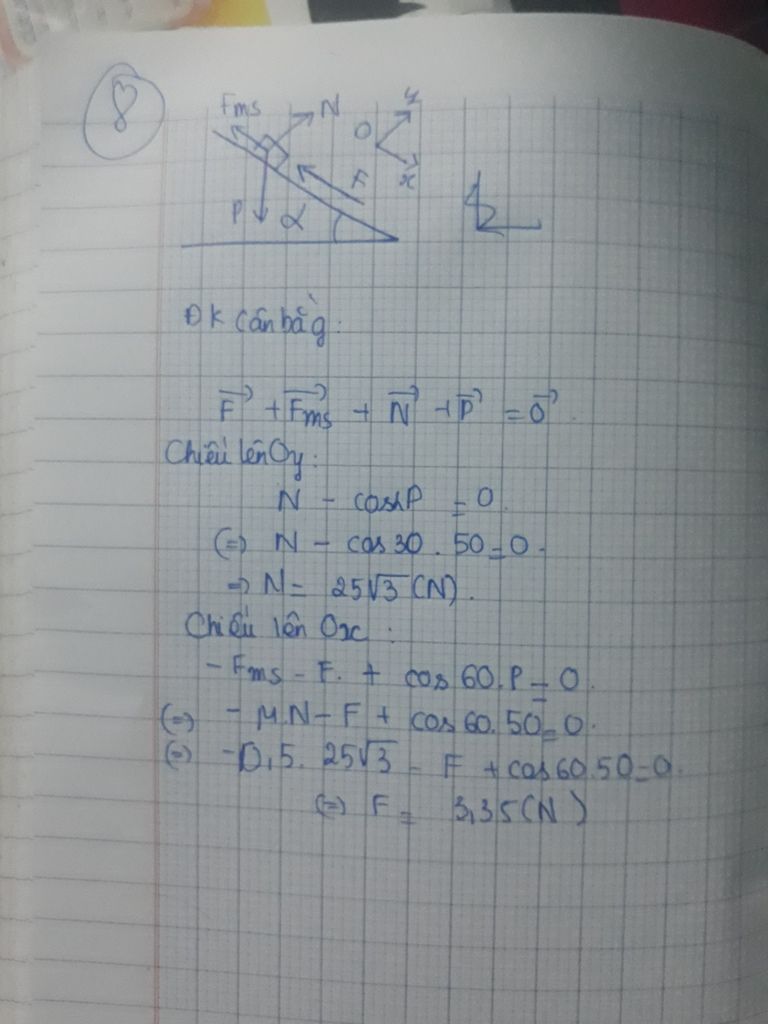 8
Fms N y
O
F x
P α
ĐK cân bằg:
F + Fms + N + P = 0.
Chiếu lên Oy:
N - cosαP = 0
(=) N - cos 30. 50=0.
=> N= 25√3 (N).
Chiếu lên Ox:
- Fms - F. + cos 60.P = 0.
(=) - μN - F + cos 60. 50=0.
(=) -0,5. 25√3 - F + cos 60.50=0.
(=) F = 3,35 (N)